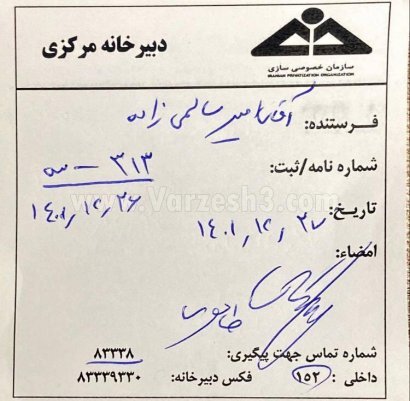 دبیرخانه مرکزی
سازمان خصوصی سازی
IRANIAN PRIVATIZATION ORGANIZATION
فرستنده: آقای امیر سالمی زاده
شماره نامه/ثبت: ۳۱۳ -
www.Varzesh3.com
۱۴۰۱٫۱۲٫۲۶
تاریخ: ۱۴۰۱٫۱۲٫۲۷
امضاء:
شماره تماس جهت پیگیری: ۸۳۳۳۸
داخلی: ۱۵۲ فکس دبیرخانه: ۸۳۳۳۹۳۳۰